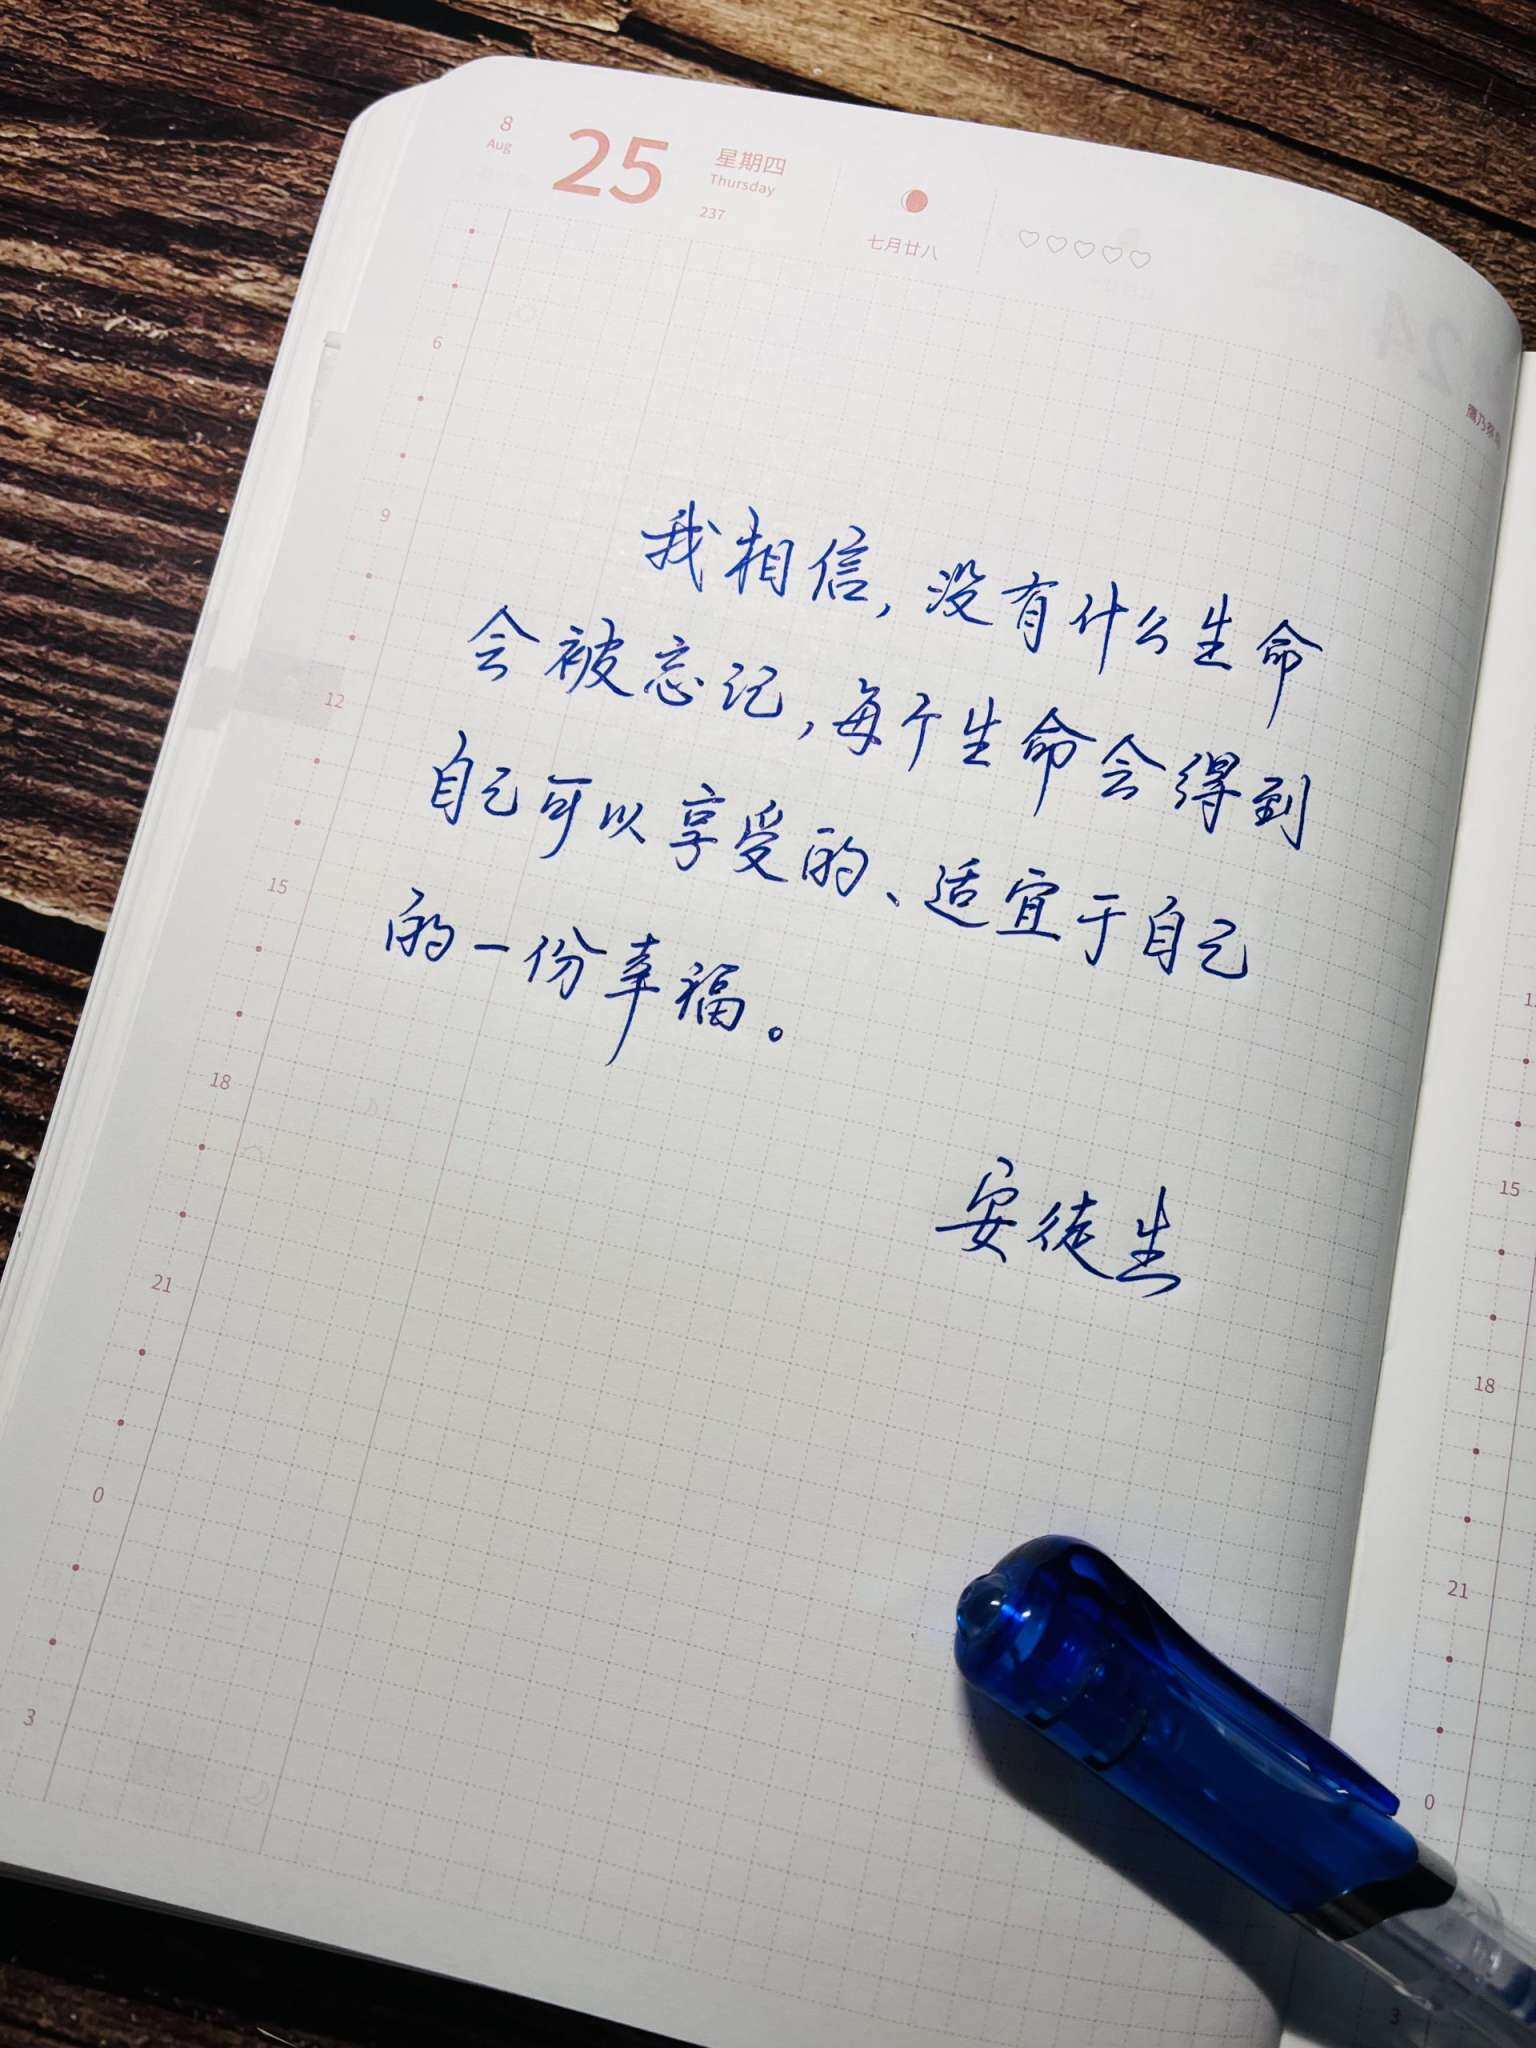 8
Aug
25
星期四
Thursday
237
七月廿八
6
9
12
15
18
21
0
3
我相信，没有什么生命
会被忘记，每个生命会得到
自己可以享受的、适宜于自己
的一份幸福。
安徒生
15
18
21
0
3